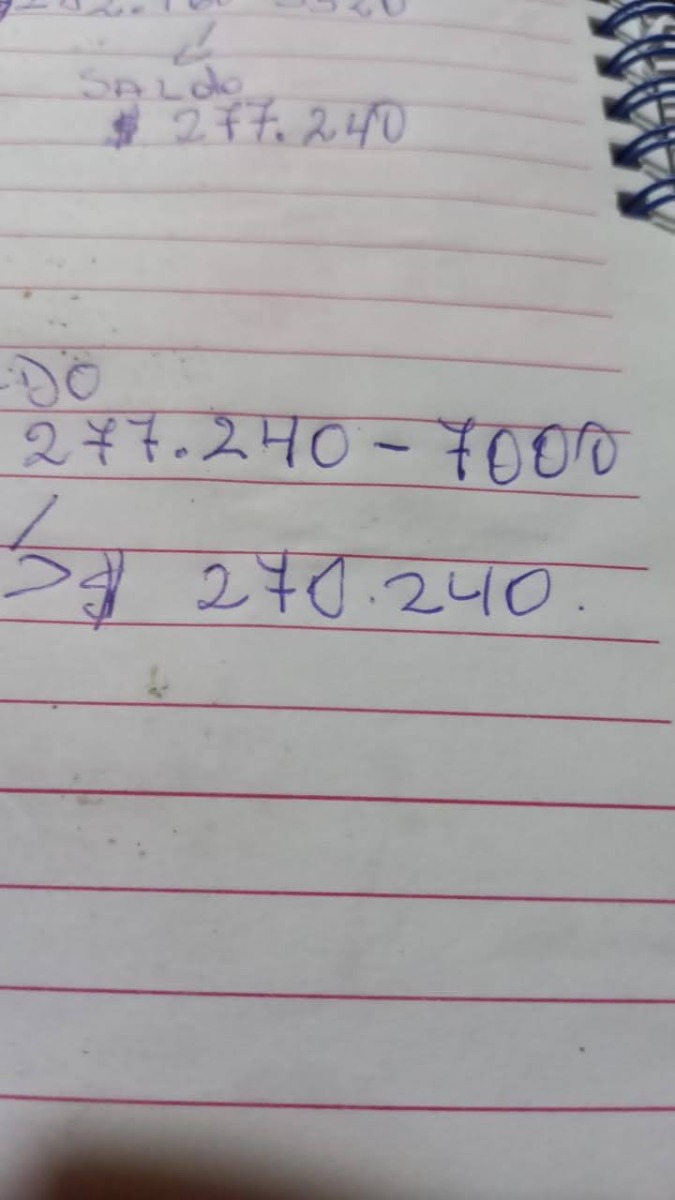 SALdo
$ 277.240
DO
277.240 - 7000
$ 270.240.